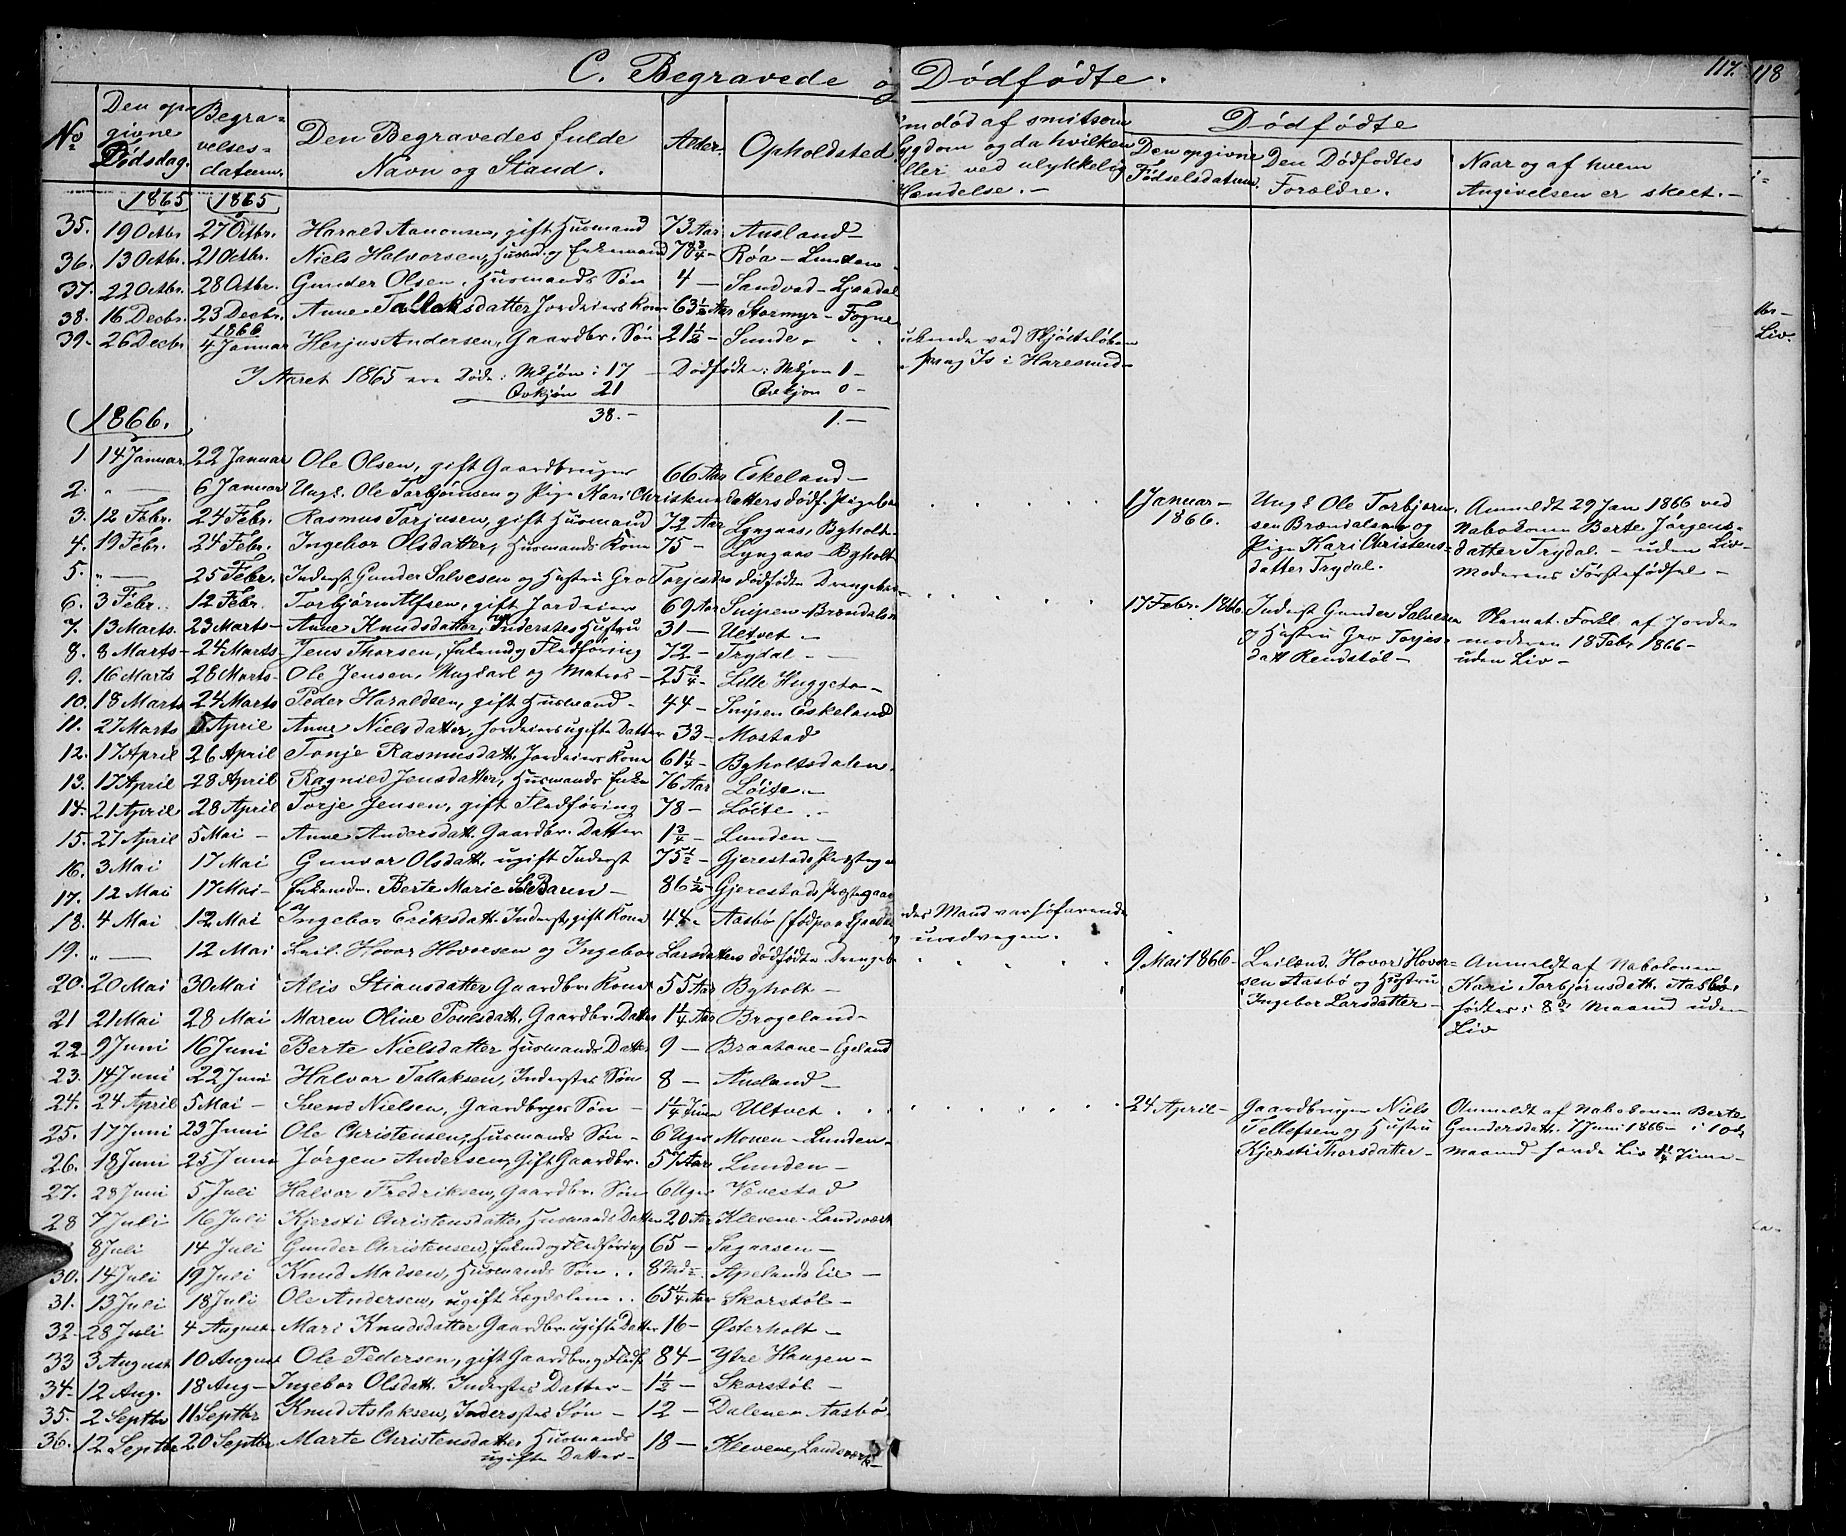 C. Begravede og Dødfødte.
117. 118
No
Den opgivne Dødsdag.
Begravelsesdatum.
Den Begravedes fulde Navn og Stand.
Alder.
Opholdsted
Om død af smitsom Sygdom og da hvilken eller ved ulykkelig Hændelse.
Dødfødte
Den opgivne Fødselsdatum.
Den Dødfødtes Forældre.
Naar og af hvem Angivelsen er skeet.
1865 1865
35. 19 Octbr. 27 Octbr. Harald Aanonsen, gift Husmand 73 Aar Ausland
36. 13 Octbr. 21 Octbr. Niels Halvorsen, Husmd. og Enkemand 78 3/4 Røa - Lunden
37. 22 Octbr. 28 Octbr. Gunder Olsen, Husmands Søn 4 - Sandvad - Ljaadal
38. 16 Decbr. 23 Decbr. Anne Tallaksdatter Jordeiers Kone 63 1/2 Aar Stormyr - Fogne
39. 26 Decbr 1866 4 Januar Herjus Andersen, Gaardbr. Søn 21 1/2 - Sunde druknede ved Skjøiteløben
paa Is i Haresund
I Aaret 1865 ere Døde: Mkjøn: 17 Dødfødte: Mkjøn 1 -
Qvkjøn 21 Qvkjøn 0 -
38. - 1. -
1866.
1 14 Januar 22 Januar Ole Olsen, gift Gaardbruger 66 Aar Eskeland
2. " 6 Januar Ungk. Ole Torbjørnsen og Pige Kari Christensdatters dødf. Pigebn 1 Januar 1866. Ungk. Ole Torbjørnsen Brændalsmo og Pige Kari Christensdatter Trydal. Anmeldt 29 Jan 1866 ved Nabokonen Berte Jørgensdatter Trydal. - uden Liv - Moderens Førstefødsel -
3. 12 Febr. 24 Febr. Rasmus Torjusen, gift Husmand 72 Aar Lyngaas, Byholt
4. 19 Febr. 24 Febr. Ingebor Olsdatter, Husmands Kone 75 - Lyngaas - Byholt
5. " 25 Febr. Inderst Gunder Salvesen og Hustru Gro Torjesdtrs dødfødte Drengebarn 17 Febr. 1866 Inderst Gunder Salvesen og Hustru Gro Torjesdatt Rendstøl - Skemat. Forkl. af Jordemoderen 18 Febr 1866 - uden Liv -
6. 3 Febr. 12 Febr. Torbjørn Alfsen, gift Jordeier 69 Aar Snipen - Brændalsmo
7. 13 Marts. 23 Marts - Anne Knudsdatter, Inderstes Hustru 31 - Ultvet -
8. 8 Marts - 24 Marts - Jens Thorsen, Enkemd og Fledføring 72 - Trydal -
9. 16 Marts 28 Marts - Ole Jensen, Ungkarl og Matros - 25 3/4 - Lille Huggeto -
10. 18 Marts 24 Marts Peder Haraldsen, gift Husmand - 44 - Snipen Eskeland
11. 27 Marts 5 April Anne Nielsdatter, Jordeiers ugifte Datter 33 - Mostad
12. 17 April 26 April Tonje Rasmusdatt. Jordeiers Kone 61 1/4 - Byholtsdalen.
13. 17 April 28 April Ragnild Jensdatter, Husmands Enke 76 Aar Løite. -
14. 21 April 28 April Torje Jensen, gift Fledføring 78 - Løite
15. 27 April 5 Mai - Anne Andersdatt. Gaardbr. Datter 1 3/4 - Lunden -
16. 3 Mai 17 Mai Gunvor Olsdatt. ugift Inderst 75 1/2 - Gjerestads Præstegaa
17. 12 Mai 17 Mai - Enkemd. Berte Marie Le Baun - 86 1/2 - Gjerestads Præstegaard
18. 4 Mai 12 Mai Ingebor Eriksdatt. Inderst, gift Kone 44 - Aasbø (fød paa Ljaadal) des Mand var søfarende
undvegen.
19. " 12 Mai Leil. Hovor Hovorsen og Ingebor Larsdatters dødfødte Drengeb 9 Mai 1866 - Leilænd. Hovor Hovorsen Aasbø og Hustru Ingebor Larsdatter - Anmeldt af Nabokonen Kari Torbjørnsdatt. Aasbø. fødtes i 8de Maaned uden Liv
20. 20 Mai 30 Mai Alis Stiansdatter Gaardbr. Kone 55 Aar Byholt -
21 21 Mai 28 Mai Maren Oline Poulsdatt. Gaardbr. Datter 1 1/4 Aar Brogeland -
22 - 9 Juni 16 Juni Berte Nielsdatter Husmands Datter 9 - Braatane - Egeland
23. 14 Juni 22 Juni Halvor Tallaksen, Inderstes Søn 8 - Ausland -
24. 24 April 5 Mai - Svend Nielsen, Gaardbrgers Søn - 1 1/4 Time Ultvet 24 April - Gaardbruger Niels Tellefsen og Hustru Kjersti Thorsdatter - Anmeldt af Nabokonen Berte Gundersdatt. 7 Juni 1866 - i 10de Maaned havde Liv 1 1/4 Time -
25. 17 Juni 23 Juni Ole Christensen, Husmands Søn - 6 Uger Monen - Lunden -
26. 18 Juni 25 Juni Jørgen Andersen, Gift Gaardbr. 57 Aar Lunden -
27. 28 Juni 5 Juli Halvor Fredriksen, Gaardbr. Søn 6 Uger Vævestad
28 7 Juli 16 Juli Kjersti Christensdatter Husmands Datter 20 Aar Klevene - Landsværk
8 Juli 14 Juli Gunder Christensen, Enkmd og Fledføring 65 - Sagaasen -
30. 14 Juli 19 Juli Knud Madsen, Husmands Søn 8 Md. Apelands Eie -
31. 13 Juli 18 Juli Ole Andersen, ugift Lægdslem 65 1/4 Aar Skorstøl -
32 - 28 Juli 4 August - Mari Knudsdatter, Gaardbr. ugifte Datter 16 - Østerholt -
33 3 August 10 August Ole Pedersen, gift Gaardbr. og Fledf. 84 - Ytre Haugen -
34 - 12 Aug. 18 Aug - Ingebor Olsdatt. Inderstes Datter - 1 1/2 - Skorstøl -
35. 2 Septbr 11 Septbr Knud Aslaksen, Inderstes Søn - 12 - Dalene - Aasbø.
36. 12 Septbr 20 Septbr Marte Christensdatter Husmands ugifte Datter - 18 - Klevene, Landsværk -